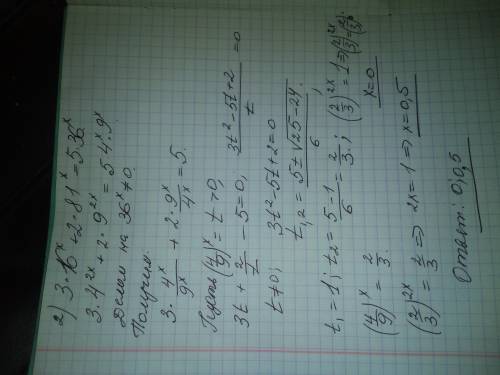 2) 3·16^x + 2·81^x = 5·36^x
3·4^{2x} + 2·9^{2x} = 5·4^x·9^x
Делим на 36^x ≠ 0.
Получим:
3·\frac{4^x}{9^x} + 2·\frac{9^x}{4^x} = 5.
Пусть (\frac{4}{9})^x = t > 0,
3t + \frac{2}{t} - 5 = 0, \frac{3t^2 - 5t + 2}{t} = 0
t ≠ 0; 3t^2 - 5t + 2 = 0
t_{1,2} = \frac{5 ± \sqrt{25 - 24}}{6};
t_1 = 1; t_2 = \frac{5 - 1}{6} = \frac{2}{3}; (\frac{2}{3})^{2x} = 1 ⇒ (\frac{2}{3})^{2x} = (\frac{2}{3})^0
x = 0
(\frac{4}{9})^x = \frac{2}{3}.
(\frac{2}{3})^{2x} = \frac{2}{3} ⇒ 2x = 1 ⇒ x = 0,5
Ответ: 0; 0,5